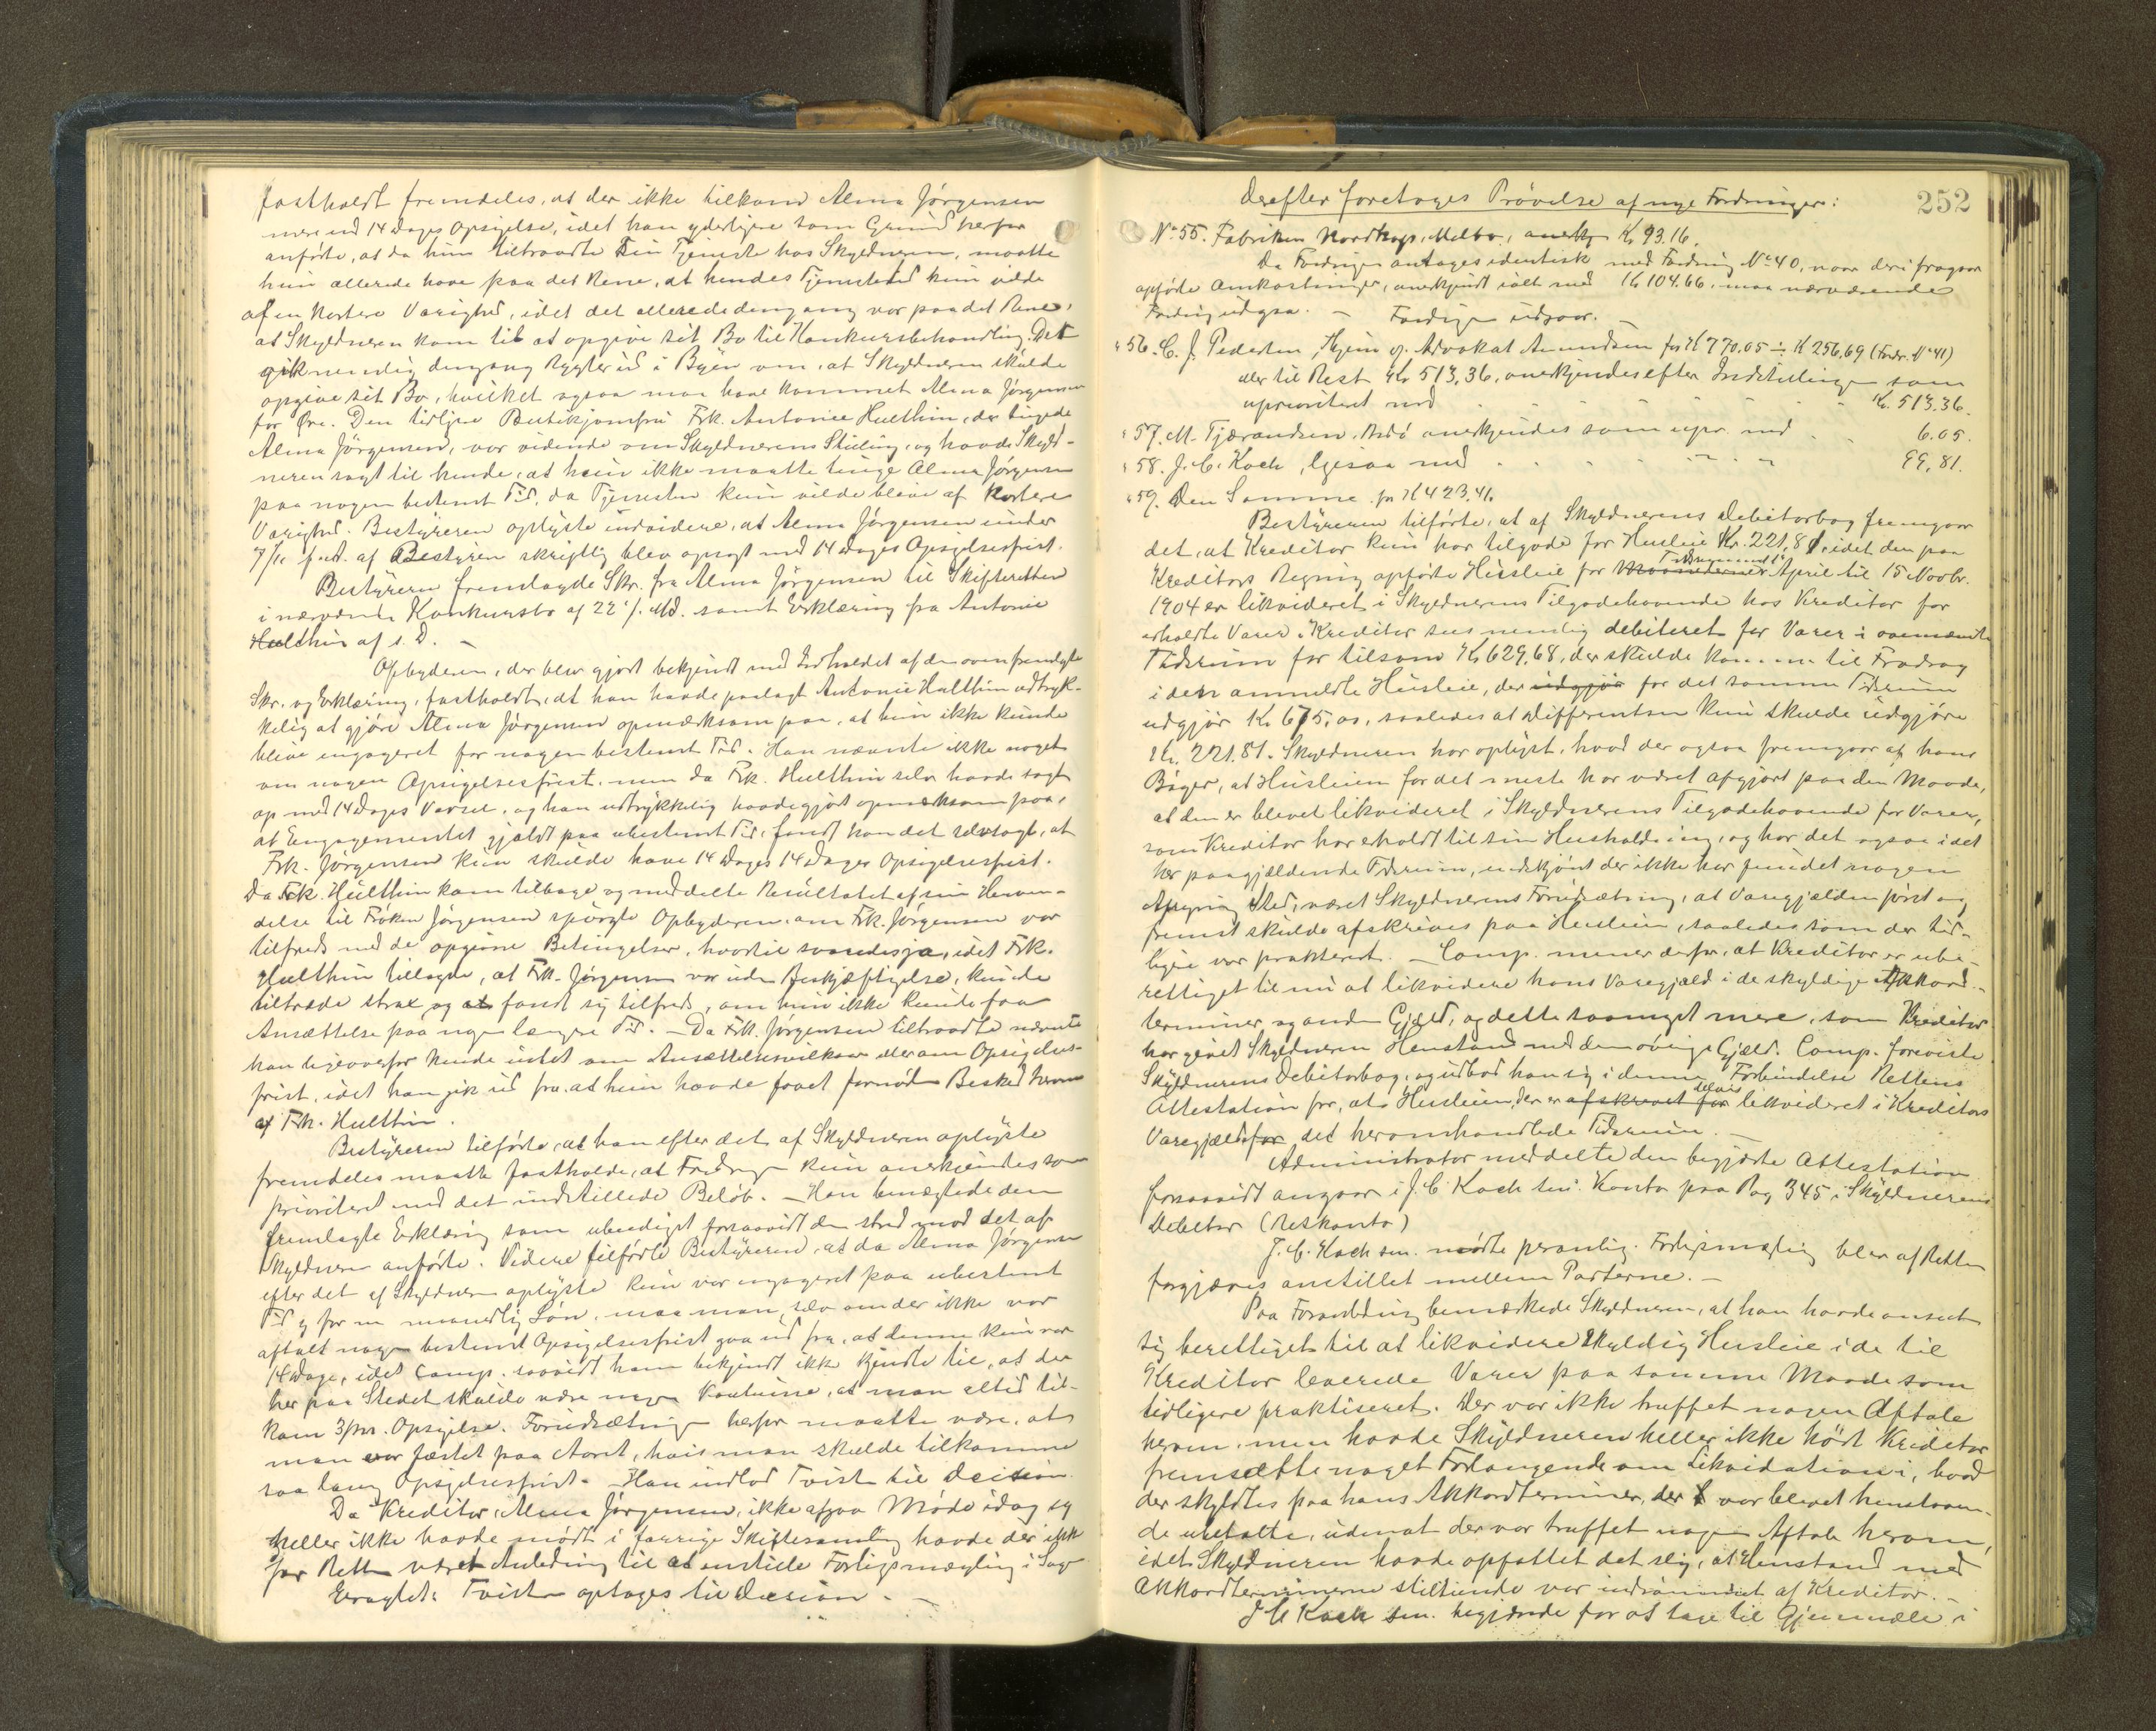 fastholdt fremdeles, at der ikke tilkom Alma Jørgensen
mere end 14 Dages Opsigelse, idet han yderligere som Grund herfor
anførte, at da hun tiltraadte sin Tjeneste hos Skyldneren, maatte
hun allerede have paa det Rene, at hendes Tjenestetid kun vilde
af en kortere Varighed, idet det allerede dengang var paa det Rene,
at Skyldneren kom til at opgive sit Bo til Konkursbehandling. Det
gik nemlig dengang Rygter ud i Byen om, at Skyldneren skulde
opgive sit Bo, hvilket ogsaa maa have kommet Alma Jørgensen
for Øre. Den tidligere Butikjomfru Frk. Antonie Hulthin, der tingede
Alma Jørgensen, var vidende om Skyldnerens Stilling, og havde Skyld-
neren sagt til hende, at hun ikke maatte tinge Alma Jørgensen
paa nogen bestemt Tid, da Tjenesten kun vilde blive af kortere
Varighed. Bestyreren oplyste endvidere, at Alma Jørgensen under
7/11 f. A. af Bestyren skriftlig blev opsagt med 14 Dages Opsigelsesfrist.
Bestyreren fremlagde Skr. fra Alma Jørgensen til Skifteretten
i nærværende Konkursbo af 22 d. Md. samt Erklæring fra Antonie
Hulthin af s. D. –
Opbyderen, der blev gjort bekjendt med Indholdet af den ovenfremlagte
Skr. og Erklæring, fastholdt, at han havde paalagt Antonie Hulthin udtryk-
kelig at gjøre Alma Jørgensen opmærksom paa, at hun ikke kunde
blive engageret for nogen bestemt Tid. Han nævnte ikke noget
om nogen Opsigelsesfrist, men da Frk. Hulthin selv havde sagt
op med 14 Dages Varsel, og han udtrykkelig havde gjort opmærksom paa,
at Engagementet gjaldt paa ubestemt Tid, fandt han det selvsagt, at
Frk. Jørgensen kun skulde have 14 Dages 14 Dages Opsigelsesfrist.
Da Frk. Hulthin kom tilbage og meddelte Resultatet af sin Henven-
delse til Frøken Jørgensen spurgte Opbyderen, om Frk. Jørgensen var
tilfreds med de opgivne Betingelser, hvortil svaredes ja, idet Frk.
Hulthin tilføiede, at Frk. Jørgensen var uden Beskjæftigelse, kunde
tiltræde strax og at fandt sig tilfreds, om hun ikke kunde faa
Ansættelse paa nogen længre Tid. – Da Frk. Jørgensen tiltraadte nævnte
han ligeoverfor hende intet om Ansættelsesvilkaar eller om Opsigelses-
frist, idet han gik ud fra, at hun havde faaet fornøden Besked herom
af Frk. Hulthin.
Bestyreren tilførte, at han efter det af Skyldneren oplyste
fremdeles maatte fastholde, at Fordringen kun anerkjendes som
prioriteret med det indstillede Beløb. – Han benægtede den
fremlagte Erklæring som ubeediget forsaavidt den stred mod det af
Skyldneren anførte. Videre tilførte Bestyreren, at da Alma Jørgensen
efter det af Skyldneren oplyste kun var engageret paa ubestemt
Tid og for en maanedlig Løn, maa man, selv om der ikke var
aftalt nogen bestemt Opsigelsesfrist gaa ud fra, at denne kun var
14 Dage, idet Comp. saavidt ham bekjendt ikke kjendte til, at der
her paa Stedet skulde være nogen Koutume, at man altid til-
kom 3 Mdr. Opsigelse. Forudsætningen herfor maatte være, at
man var fæstet paa Aaret, hvis man skulde tilkomme
saa lang Opsigelsesfrist. – Han indlod Tvisten til Decision.
Da Kreditor, Alma Jørgensen, ikke afgav Møde idag og
heller ikke havde mødt i forrige Skiftesamling havde der ikke
for Retten været Anledning til at anstille Forligsmægling i Sagen
Eragtet: Tvisten optages til Decision. –
252
Derefter foretoges Prøvelse af nye Fordringer:
No 55. Fabriken Nordkap, Melbo, anerkj. Kr. 93.16.
Da Fordringen antages identisk med Fordring No 40, naar deri fragaar
opførte Omkostninger, anerkjendt ialt med Kr. 104.66, maa nærværende
Fordring udgaa. – Fordringen udgaar. –
" 56. C. J. Pedersen, Thjem v. Advokat Amundsen for Kr 770.05 ÷ Kr 256,69 (Fordr. No 41)
eller til Rest Kr. 513,36, anerkjendes efter Indstillingen som
uprioriteret med . . . . . . . Kr. 513.36.
" 57. M. Tjærandsen, Bodø anerkjendes som upr. med . . 6.05.
" 58. J. C. Koch, ligesaa med . . . . . 99,81.
" 59. Den Samme for Kr 423,41.
Bestyreren tilførte, at af Skyldnerens Debitorbog fremgaar
det, at Kreditor kun har tilgode for Husleie Kr. 221,81, idet den paa
Kreditors Regning opførte Husleie for Maanederne Tidsrummet 15 April til 15 Novbr.
1904 er likvideret i Skyldnerens Tilgodehavende hos Kreditor for
erholdte Varer. Kreditor sees nemlig debiteret for Varer i ovennævnte
Tidsrum for tilsam. Kr. 629,68, der skulde komme til Fradrag
i den anmeldte Husleie, der udgjør for det samme Tidsrum
udgjør Kr. 675,00, saaledes at Differentsen kun skulde udgjøre
Kr. 221.81. Skyldneren har oplyst, hvad der ogsaa fremgaar af hans
Bøger, at Husleien for det meste har været afgjort paa den Maade,
at den er blevet likvideret i Skyldnerens Tilgodehavende for Varer,
som Kreditor har erholdt til sin Husholdning, og har det ogsaa i det
her paagjældende Tidsrum, endskjønt der ikke har fundet nogen
Afregning Sted, været Skyldnerens Forudsætning, at Varegjælden først og
fremst skulde afskrives paa Husleien, saaledes som der tid-
ligere var praktiseret. – Comp. mener derfor, at Kreditor er ube-
rettiget til nu at likvidere hans Varegjæld i de skyldige Akkord-
terminer og anden Gjæld, og dette saameget mere, som Kreditor
har givet Skyldneren Henstand med den øvrige Gjæld. Comp. foreviste
Skyldnerens Debitorbog, og udbad han sig i denne Forbindelse Rettens
Attestation for, at Husleien, der er afskrevet for delvis likvideret i Kreditors
Varegjæld for det heromhandlede Tidsrum. –
Administrator meddelte den begjærte Attestation
forsaavidt angaar i J. C. Koch sen. Konto paa Pag 345 i Skyldnerens
Debitor (Reskontro)
J. C. Koch sen. mødte personlig. Forligsmægling blev af Retten
forgjæves anstillet mellem Parterne. –
Paa Foranledning bemærkede Skyldneren, at han havde anseet
sig berettiget til at likvidere skyldig Husleie i de til
Kreditor leverede Varer paa samme Maade som
tidligere praktiseret. Der var ikke truffet nogen Aftale
herom, men havde Skyldneren heller ikke hørt Kreditor
fremsætte noget Forlangende om Likvidation i, hvad
der skyldtes paa hans Akkordterminer, der var blevet henstaaen-
de ubetalte, uden at der var truffet nogen Aftale herom,
idet Skyldneren havde opfattet det slig, at Henstand med
Akkordterminerne stiltiende var indrømmet af Kreditor. –
J C Koch sen. begjærede for at tage til Gjenmæle i